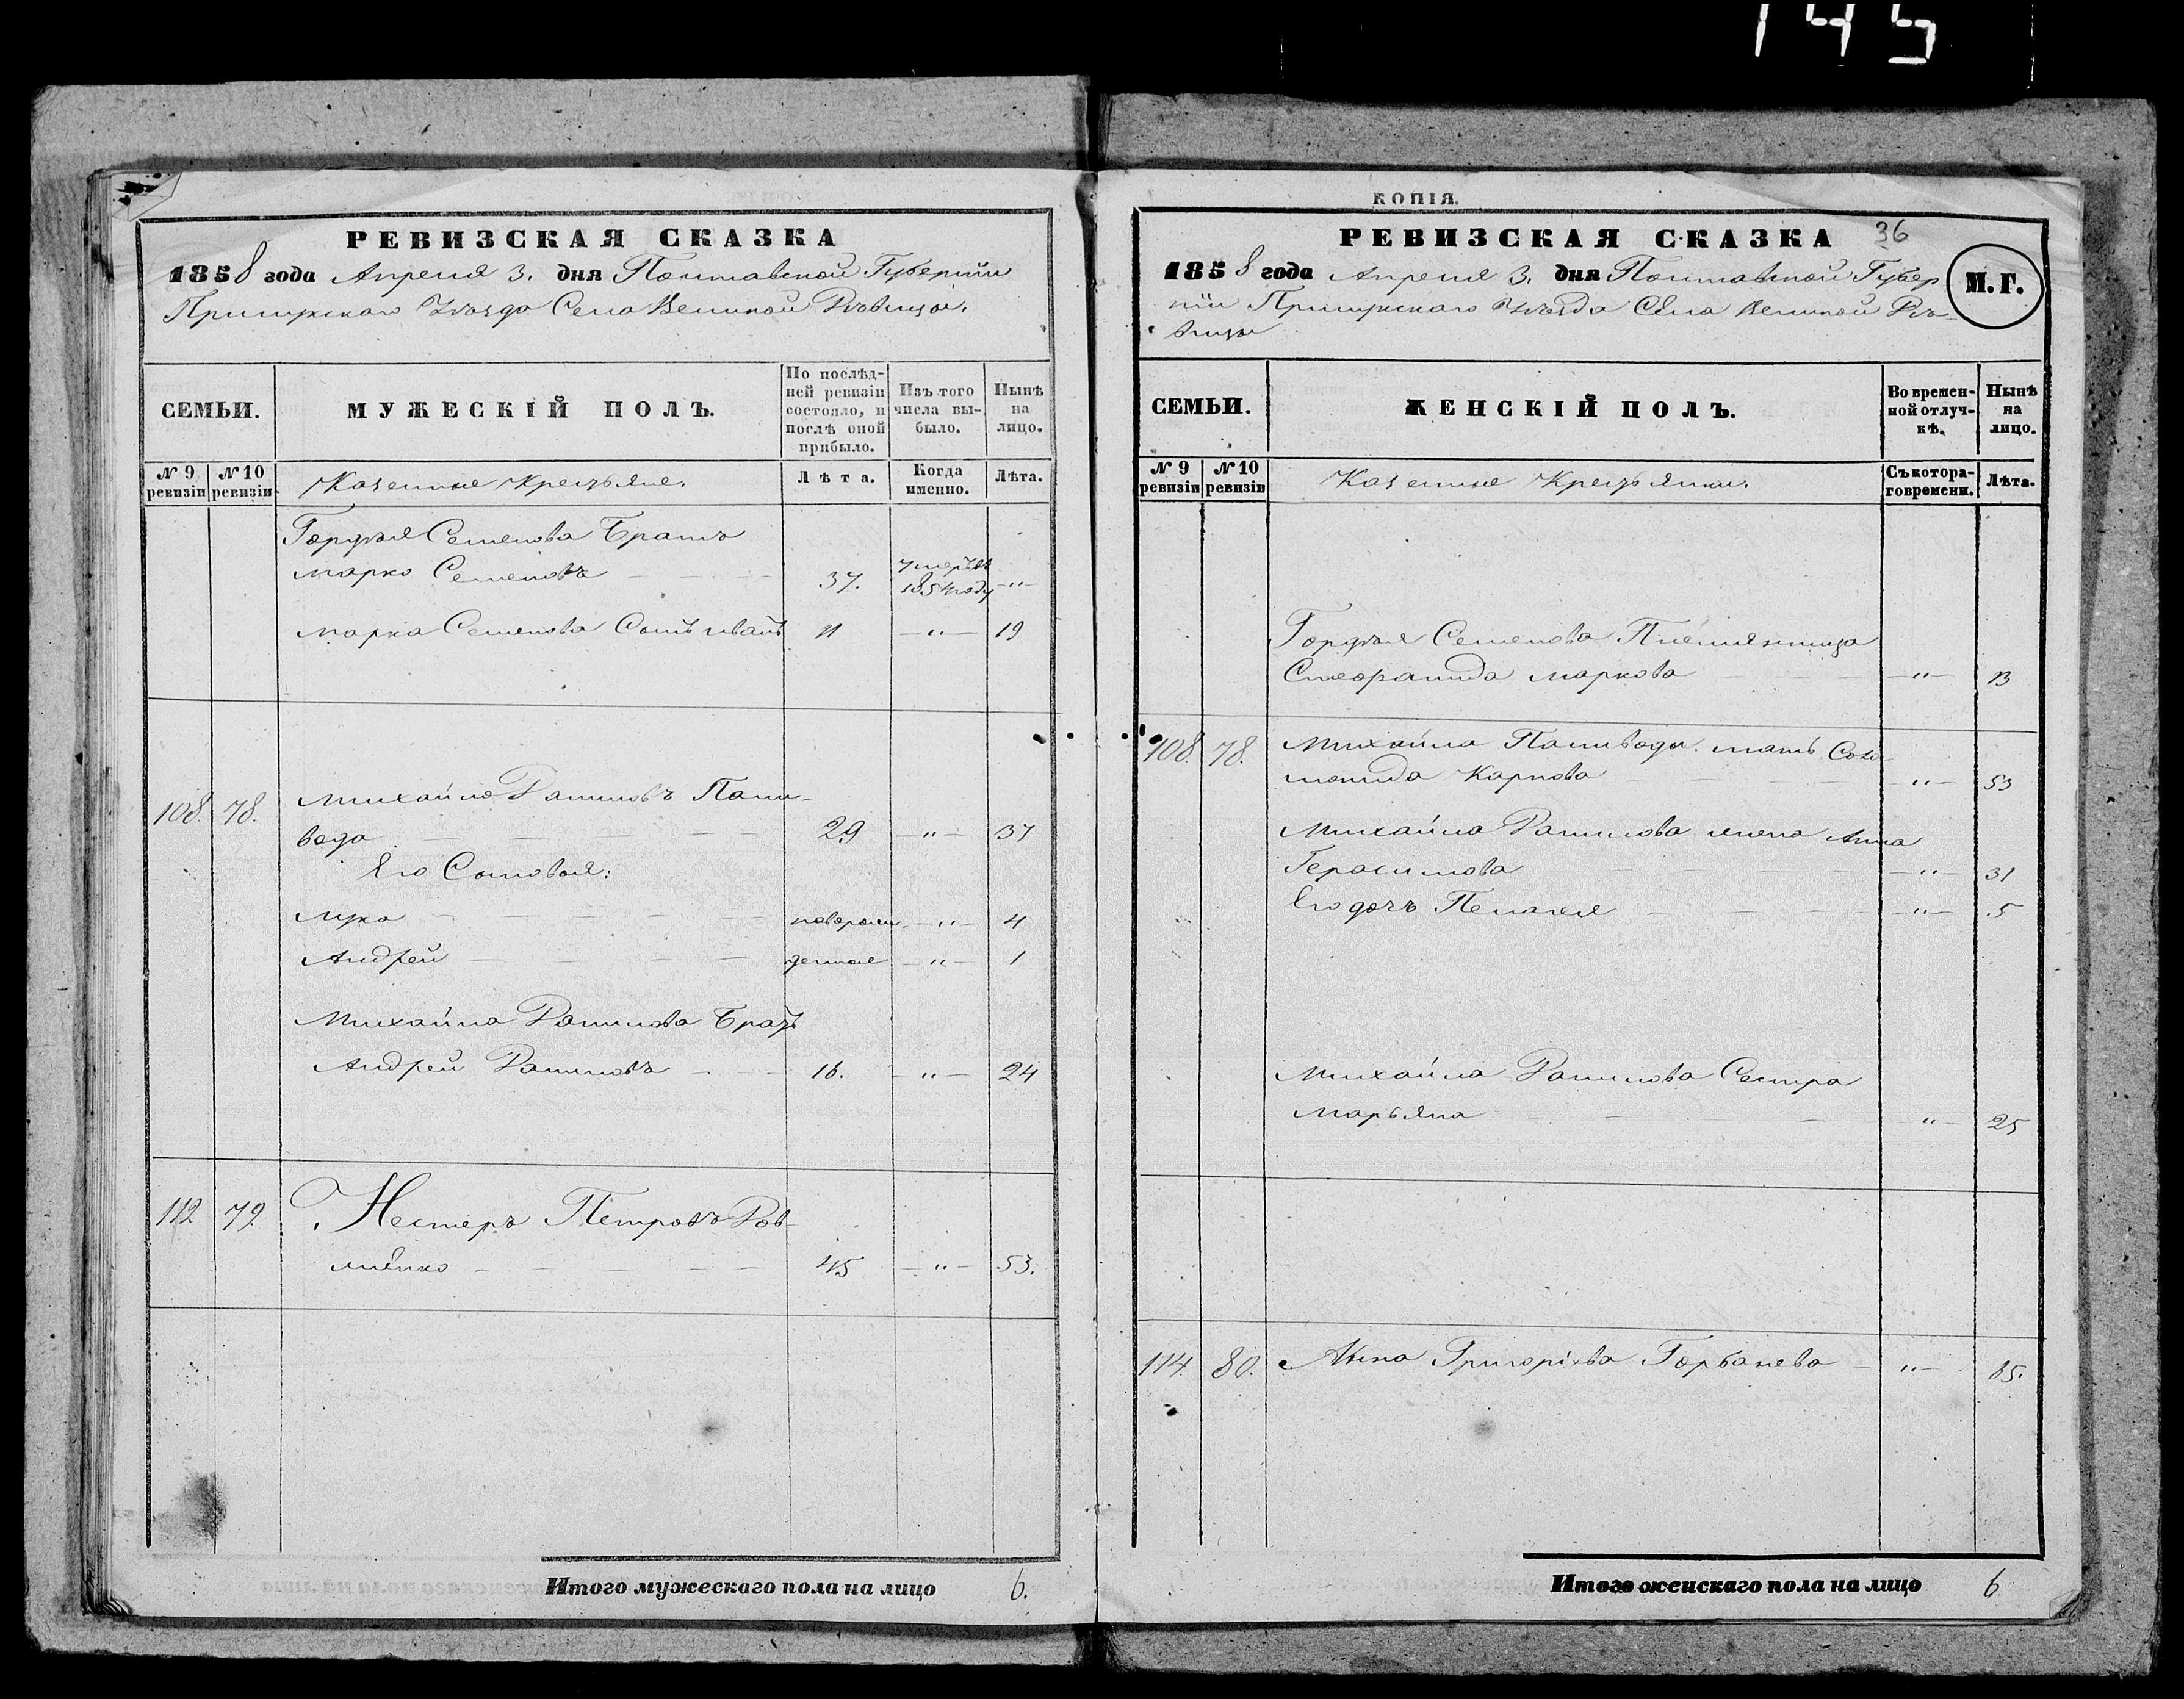 145
РЕВИЗСКАЯ СКАЗКА
1858 года Апреля 3. дня Полтавской Губерніи
Прилукскаго Уѣзда Села Великой Дѣвицы.
СЕМЬИ.
МУЖЕСКІЙ ПОЛЪ.
По послѣд-
ней ревизіи
состояло, и
послѣ оной
прибыло.
Изъ того
числа вы-
было.
Нынѣ
на
лицо.
№ 9
ревизіи
№ 10
ревизіи
Казенные Крестьяне.
Лѣта.
Когда
именно.
Лѣта.
Гордѣя Семенова Братъ
Марко Семеновъ 37. умеръ въ
1854 году "
Марка Семенова Сынъ Иванъ 11 " 19
108. 78. Михайло Даниловъ Пали-
вода 29 " 37
Его Сыновья:
Лука новорож. " 4
Андрей денные " 1
Михайла Данилова Братъ
Андрей Даниловъ 16. " 24
112 79. Нестеръ Петровъ
45 " 53.
Итого мужескаго пола на лицо 6.
КОПІЯ.
РЕВИЗСКАЯ СКАЗКА 36
1858 года Апреля 3. дня Полтавской Губер
ніи Прилукскаго Уѣзда Села Великой Дѣ-
вицы
М. Г.
СЕМЬИ.
ЖЕНСКІЙ ПОЛЪ.
Во времен-
ной отлуч-
кѣ.
Нынѣ
на
лицо.
№ 9
ревизіи
№ 10
ревизіи
Казенные Крестьянки.
Съ котора-
го времени.
Лѣта.
Гордѣя Семенова Племянница
Маркова " 13
108. 78. Михайла Паливоды мать Соло-
монида Карпова " 53
Михайла Данилова жена Анна
Герасимова " 31
Его дочь Пелагея " 5
Михайла Данилова Сестра
Марьяна " 25
114. 80. Анна Григоріева Горбанева "
Итого женскаго пола на лицо 6